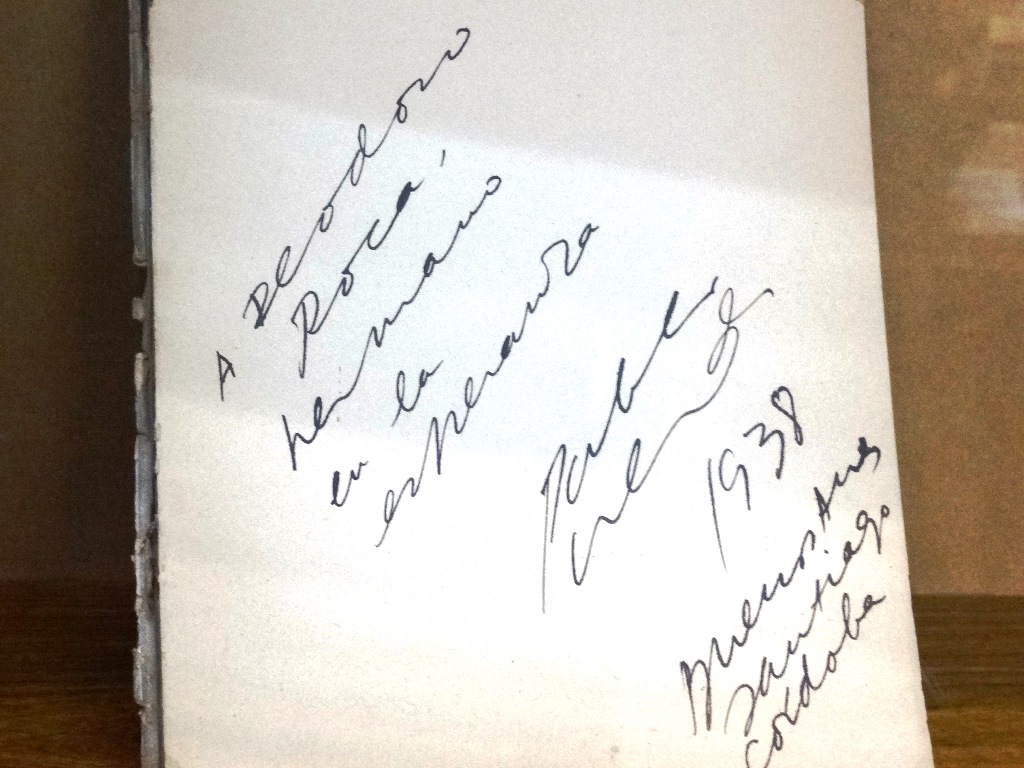 A Deodoro
Roca,
hermano
en la
esperanza
Pablo
1938
Buenos Aires
Santiago
Cordoba